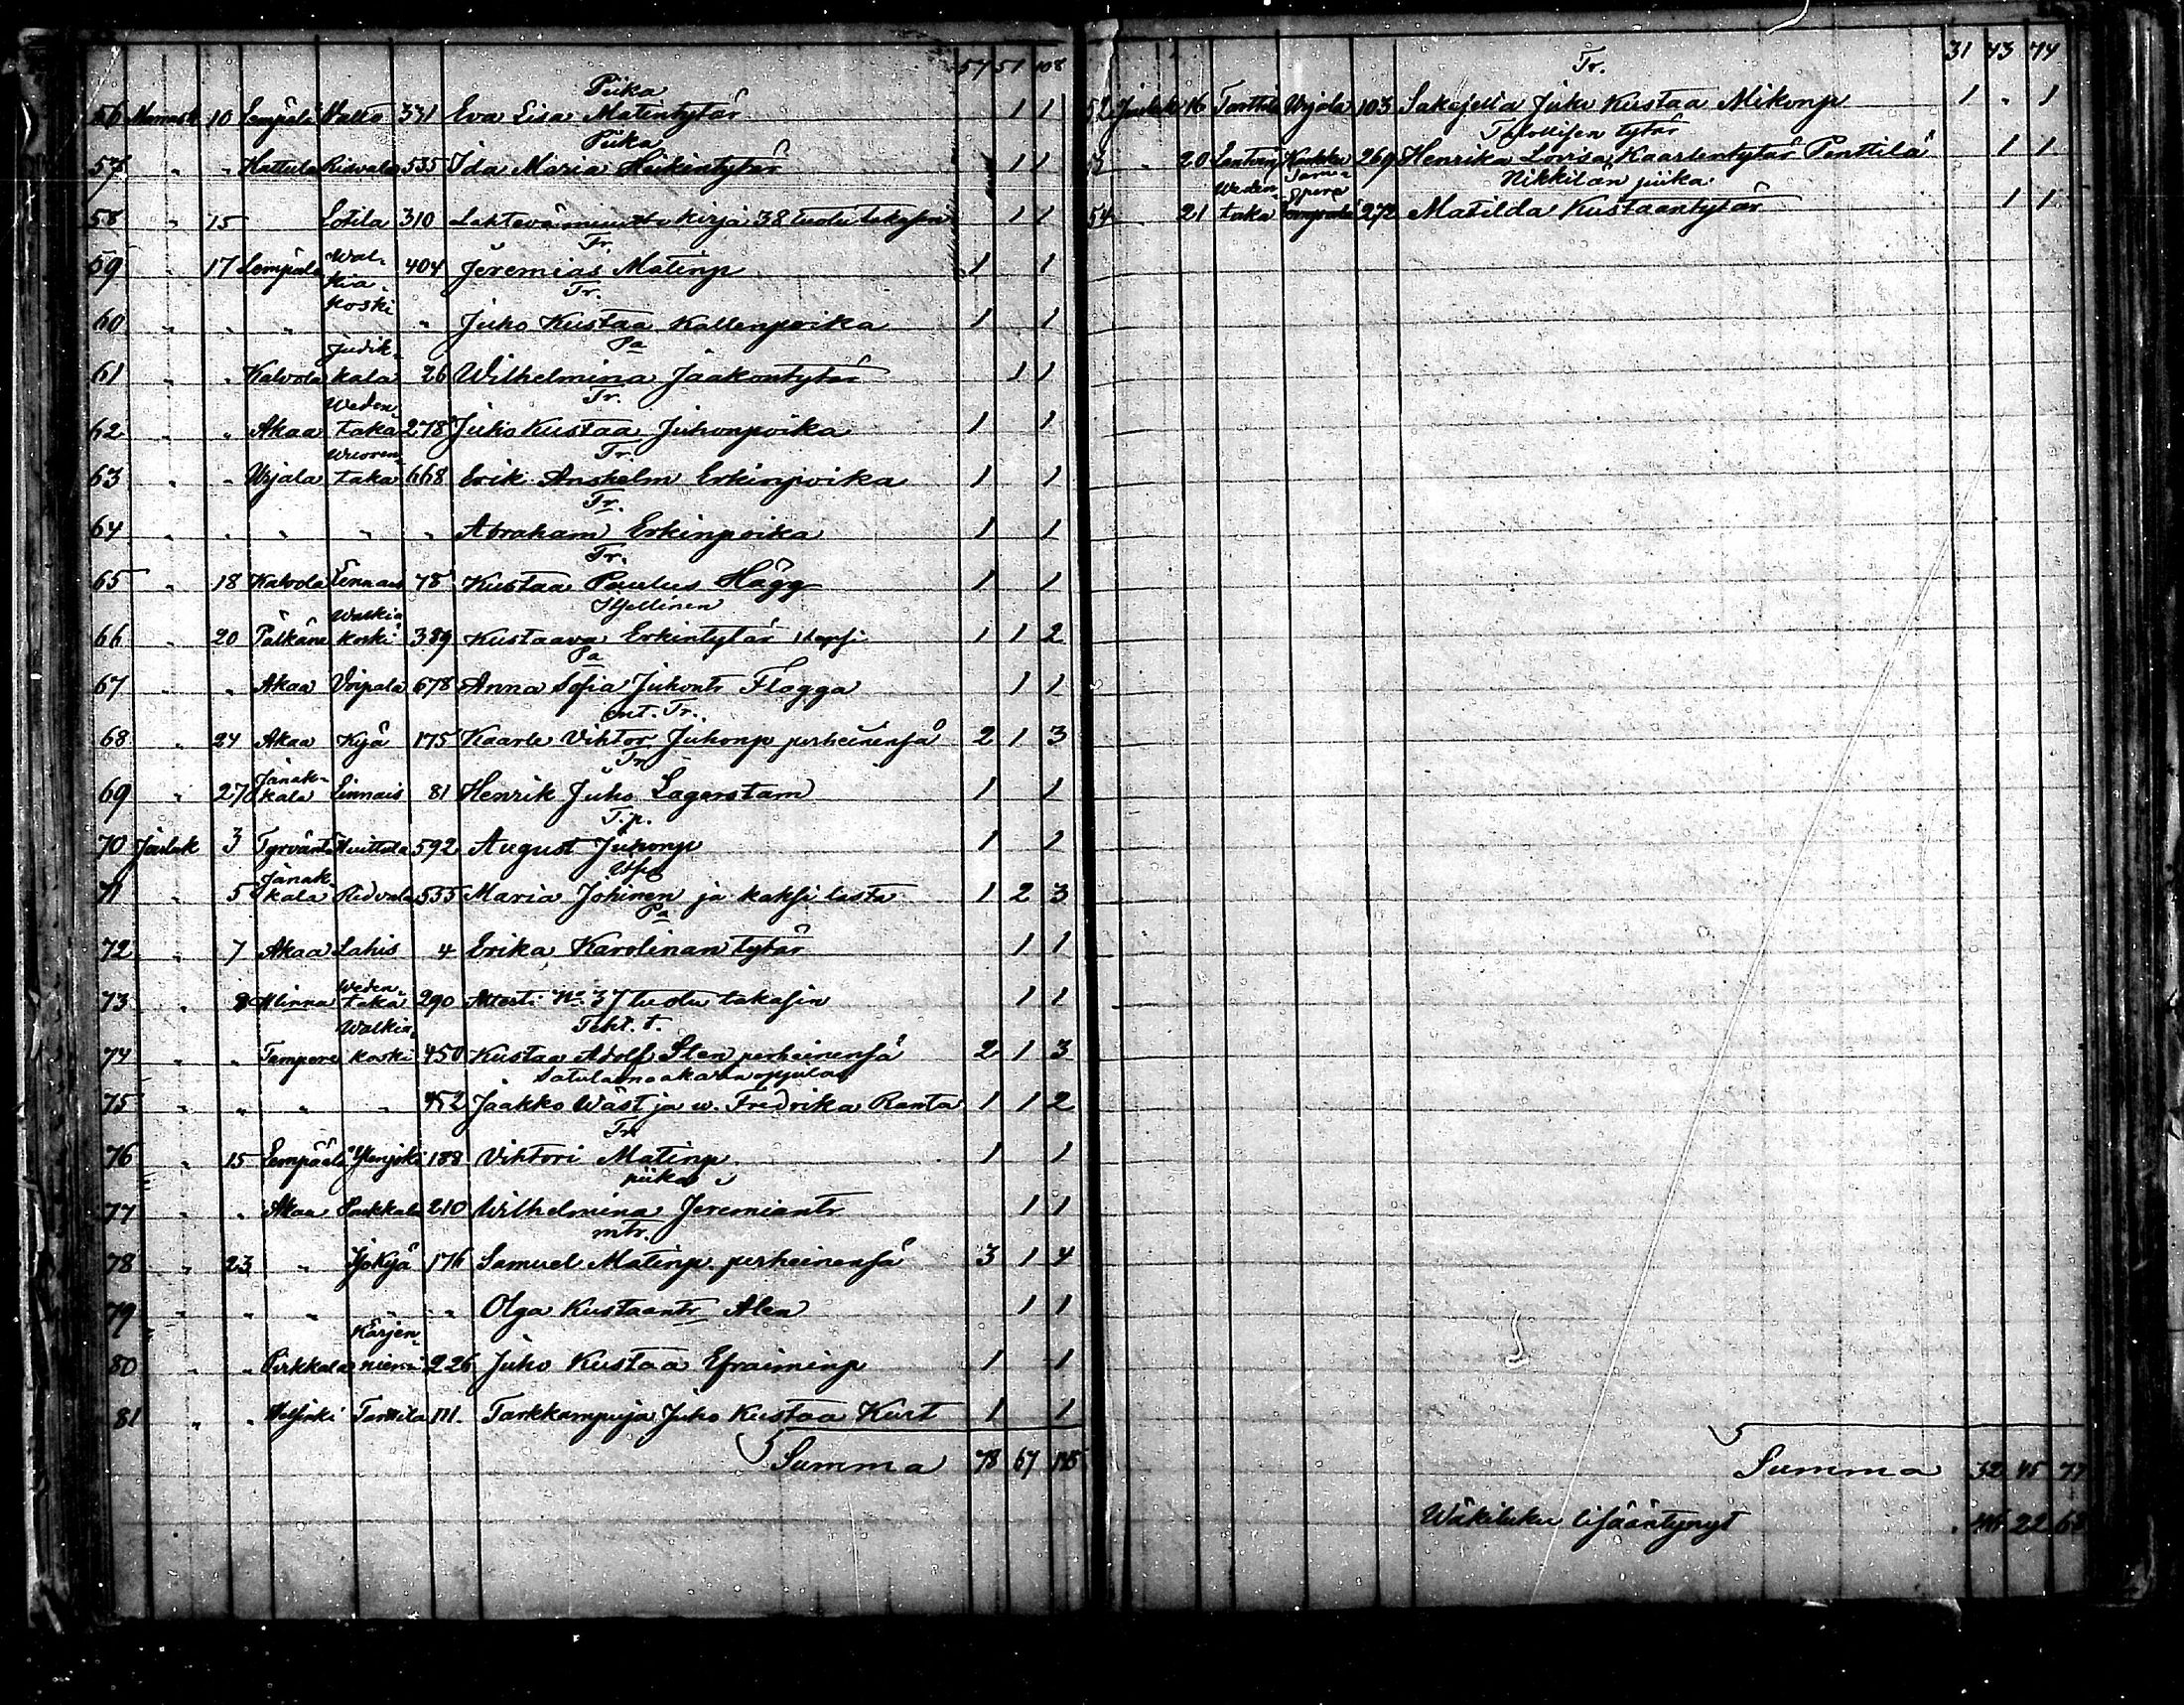 57 51 108
Piika
56 Marrask 10 Lempäälä Walto 331 Eva Lisa Matintytär 1 1
Piika
57 " " Hattula Ridvala 535 Ida Maria Heikintytär 1 1
58 " 15 Lotila 310 kirja 38 tuotu takasin 1 1
Tr.
59 " 17 Lempäälä Wal-kia-koski 404 Jeremias Matinp 1 1
Tr.
60 " " " " Juho Kustaa Kallenpoika 1 1
Pa
61 " " Kalvola Judik-kala 26 Wilhelmina Jaakontytär 1 1
Tr.
62 " " Akaa Weden-taka 278 Juho Kustaa Juhonpoika 1 1
Tr.
63 " " Urjala Wuoren-taka 668 Erik Anshelm Erkinpoika 1 1
Tr.
64 " " " " " Abraham Erkinpoika 1 1
Tr.
65 " 18 Kalvola Linnais 78 Kustaa Paulus Hägg 1 1
Itsellinen
66 " 20 Pälkäne Walkia koski 389 Kustaava Erkintytär 1 lapsi 1 1 2
Pa
67 " " Akaa Voipala 678 Anna Sofia Juhontr Flagga 1 1
ent. Tr.
68 " 24 Akaa Kyjä 175 Kaarle Vihtor Juhonp perheinensä 2 1 3
Tr
69 " 27 Janak-kala Linnais 81 Henrik Juho Lagerstam 1 1
T.p.
70 Jouluk 3 Tyrväntö Huittula 592 August Juhonp 1 1
Itse
71 " 5 Janak-kala Ridvala 535 Maria Johinen ja kaksi lasta 1 2 3
Pa
72 " 7 Akaa Lahis 4 Erika Karolinan tytär 1 1
73 " 8 Hlinna Weden-taka 290 Attesti No 37 tuotu takasin 1 1
Teht. t.
74 " " Tampere Walkia-koski 450 Kustaa Adolf Sten perheinensä 2 1 3
Satulamaakarin oppilas
75 " " " " 452 Jaakko Wäst ja w. Fredrika Ranta 1 1 2
Tr
76 " 15 Lempäälä Ylenjoki 188 Vihtori Matinp 1 1
piika
77 " " Akaa Sakkala 210 Wilhelmina Jeremiantr 1 1
mtr.
78 " 23 " Jokyjä 176 Samuel Matinp perheinensä 3 1 4
79 " " " " " Olga Kustaantr Alen 1 1
80 " " Pirkkala Kärjen-niemi 226 Juho Kustaa Efraiminp 1 1
81 " " Helsinki Tarttila 111 Tarkkampuja Juho Kustaa Kurt 1 1
Summa 78 67 145
31 43 74
Tr.
52 Jouluk 16 Tarttila Urjala 103 Sakajeria Juho Kustaa Mikonp 1 " 1
Talollisen tytär
53 " 20 269 Henrika Lovisa Kaarlentytär Penttilä 1 1
Nikkilän piika
54 21 Weden-taka 272 Matilda Kustaantytär 1 1
Summa 32 45 77
Wäkiluku lisääntynyt 46 22 68